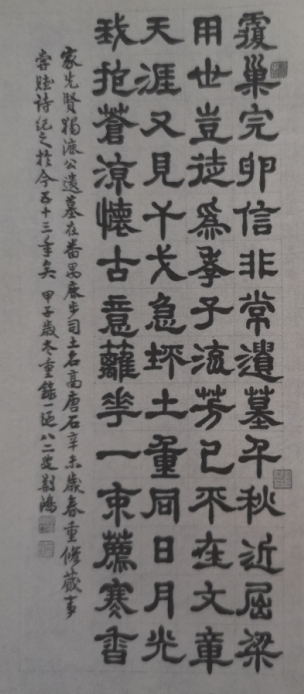 覆巢完卵信非常遺墓千秋近屈梁
用世豈徒為孝子流芳已不在文章
天涯又見干戈急坏土重同日月光
我抱蒼涼懷古意蘺華一束薦寒香
家先賢獨漉公遺墓在番禺鹿步司土名高唐石辛未歲春重修蕆事
嘗賦詩紀之於今五十三年矣 甲子歲冬重錄一過八二叟